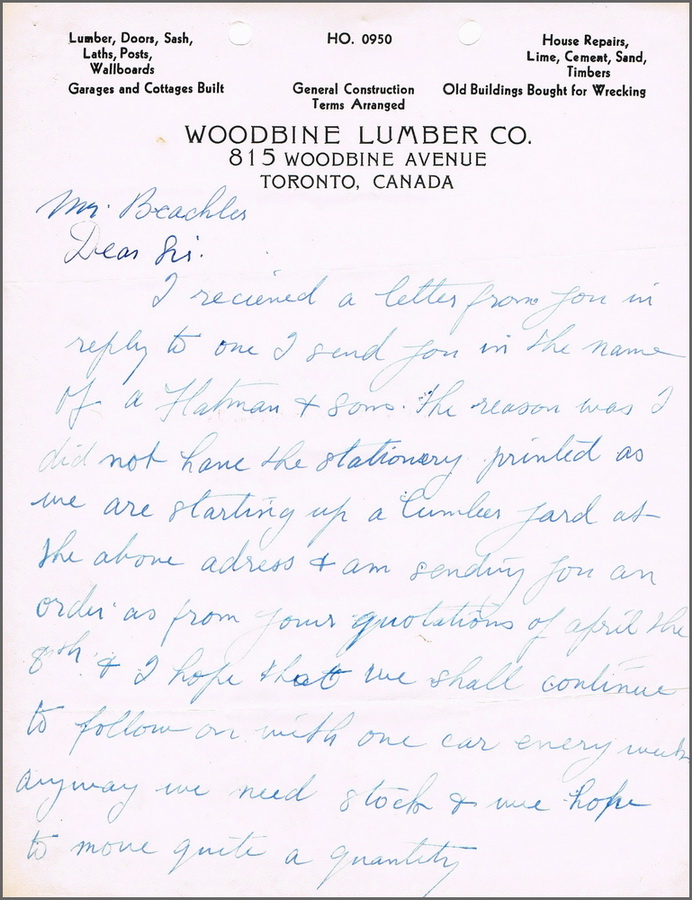 Lumber, Doors, Sash,
Laths, Posts,
Wallboards
Garages and Cottages Built
HO. 0950
General Construction
Terms Arranged
House Repairs,
Lime, Cement, Sand,
Timbers
Old Buildings Bought for Wrecking
WOODBINE LUMBER CO.
815 WOODBINE AVENUE
TORONTO, CANADA
Mr. Beachler
Dear Sir.
I recieved a letter from you in
reply to one I send you in the name
of a Flatman & Sons. The reason was I
did not have the stationery printed as
we are starting up a lumber yard at
the above adress & am sending you an
order as from your quotations of april the
8th. & I hope that we shall continue
to follow on with one car every week
anyway we need stock & we hope
to move quite a quantity